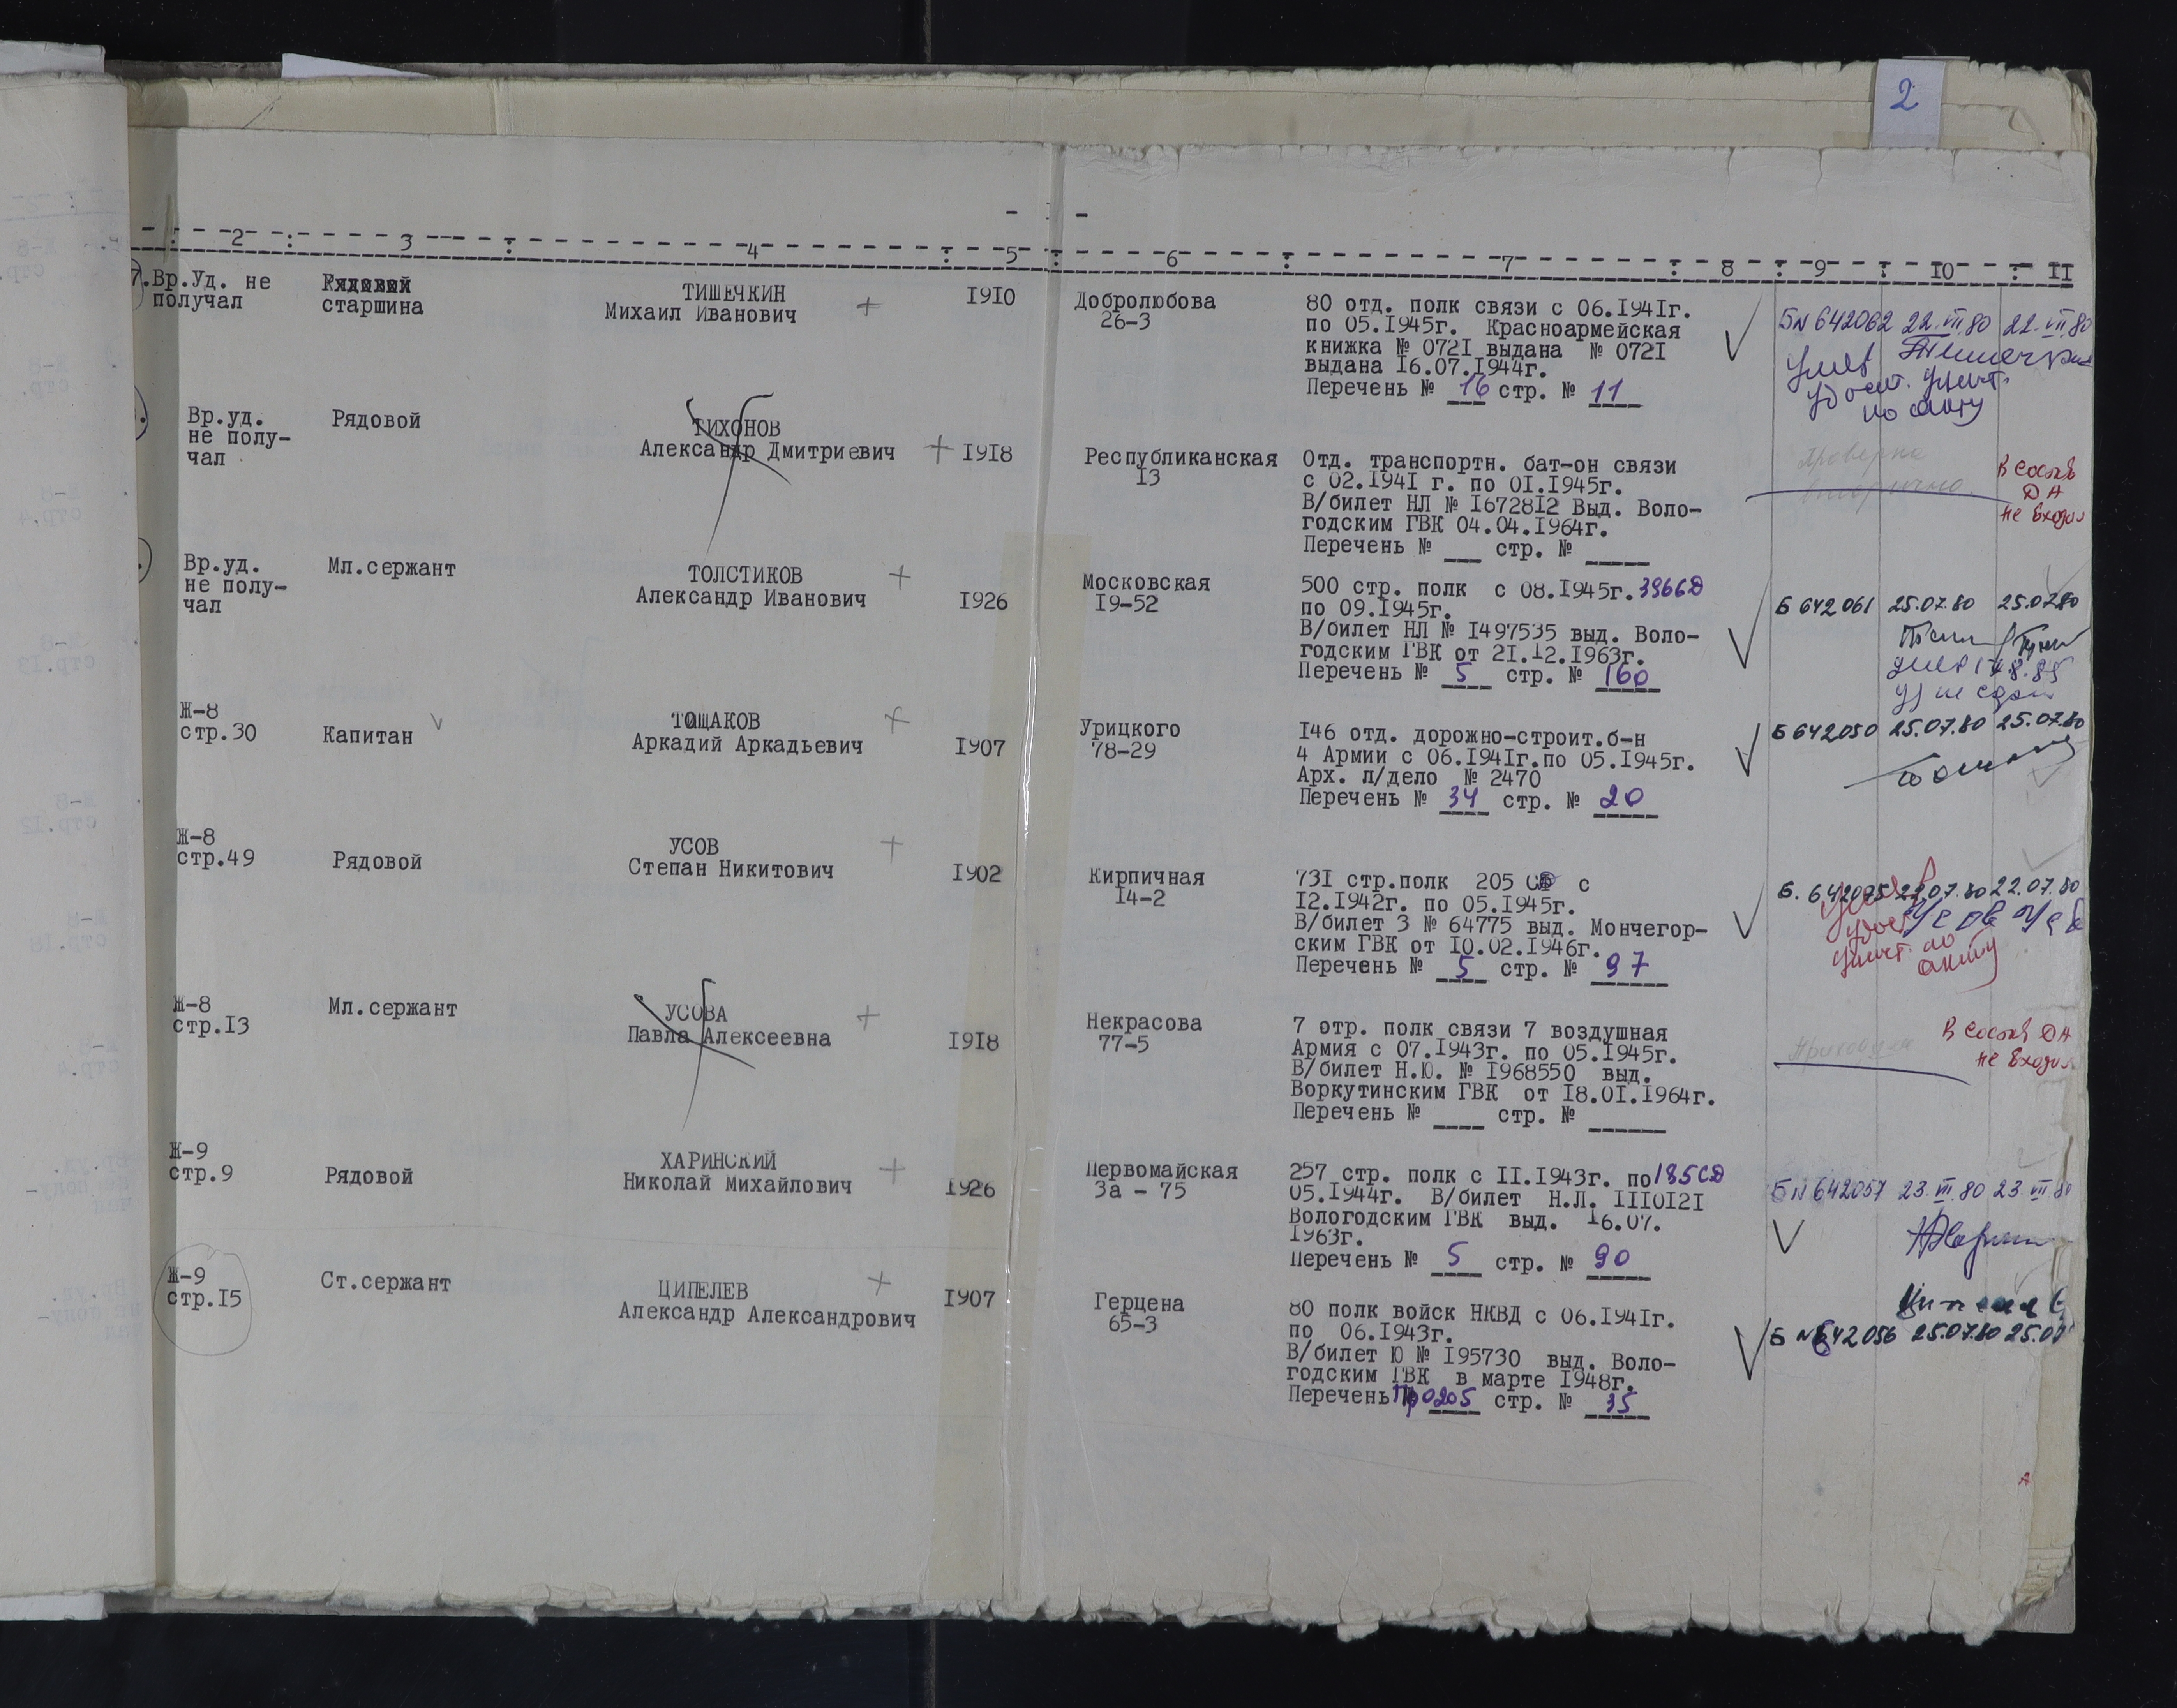 2
2 3 4 5 6 7 8 9 10 11
7. Вр.Уд. не
получал
Рядовой
старшина
ТИШЕЧКИН
Михаил Иванович
1910
Добролюбова
26-3
80 отд. полк связи с 06.1941г.
по 05.1945г. Красноармейская
книжка № 0721 выдана № 0721
выдана 16.07.1944г.
Перечень № 16 стр. № 11
БN 642062 22.VII.80 22.VII.80
умер
удост. уничт.
по акту
Вр.уд.
не полу-
чал
Рядовой
ТИХОНОВ
Александр Дмитриевич
1918
Республиканская
13
Отд. транспортн. бат-он связи
с 02.1941 г. по 01.1945г.
В/билет НЛ № 1672812 Выд. Воло-
годским ГВК 04.04.1964г.
Перечень № ___ стр. № ___
В состав
ДА
не входил
Вр.уд.
не полу-
чал
Мл.сержант
ТОЛСТИКОВ
Александр Иванович
1926
Московская
19-52
500 стр. полк с 08.1945г. 396СД
по 09.1945г.
В/билет НЛ № 1497535 выд. Воло-
годским ГВК от 21.12.1963г.
Перечень № 5 стр. № 160
Б 642061 25.07.80 25.07.80
Ж-8
стр.30
Капитан
ТОЩАКОВ
Аркадий Аркадьевич
1907
Урицкого
78-29
146 отд. дорожно-строит.б-н
4 Армии с 06.1941г.по 05.1945г.
Арх. л/дело № 2470
Перечень № 34 стр. № 20
Б 642050 25.07.80 25.07.80
Ж-8
стр.49
Рядовой
УСОВ
Степан Никитович
1902
Кирпичная
14-2
731 стр.полк 205 СД с
12.1942г. по 05.1945г.
В/билет З № 64775 выд. Мончегор-
ским ГВК от 10.02.1946г.
Перечень № 5 стр. № 97
22.07.80 22.07.80
умер
удост.
уничт. по
акту
Ж-8
стр.13
Мл.сержант
УСОВА
Павла Алексеевна
1918
Некрасова
77-5
7 отр. полк связи 7 воздушная
Армия с 07.1943г. по 05.1945г.
В/билет Н.Ю. № 1968550 выд.
Воркутинским ГВК от 18.01.1964г.
Перечень № ___ стр. № ___
В состав ДА
не входил
Ж-9
стр.9
Рядовой
ХАРИНСКИЙ
Николай Михайлович
1926
Первомайская
3а - 75
257 стр. полк с 11.1943г. по 185СД
05.1944г. В/билет Н.Л. 1110121
Вологодским ГВК выд. 16.07.
1963г.
Перечень № 5 стр. № 90
БN 642057 23.VII.80 23.VII.80
Ж-9
стр.15
Ст.сержант
ЦИПЕЛЕВ
Александр Александрович
1907
Герцена
65-3
80 полк войск НКВД с 06.1941г.
по 06.1943г.
В/билет Ю № 195730 выд. Воло-
годским ГВК в марте 1948г.
Перечень Пр 0205 стр. № 35
Б N 642056 25.07.80 25.07